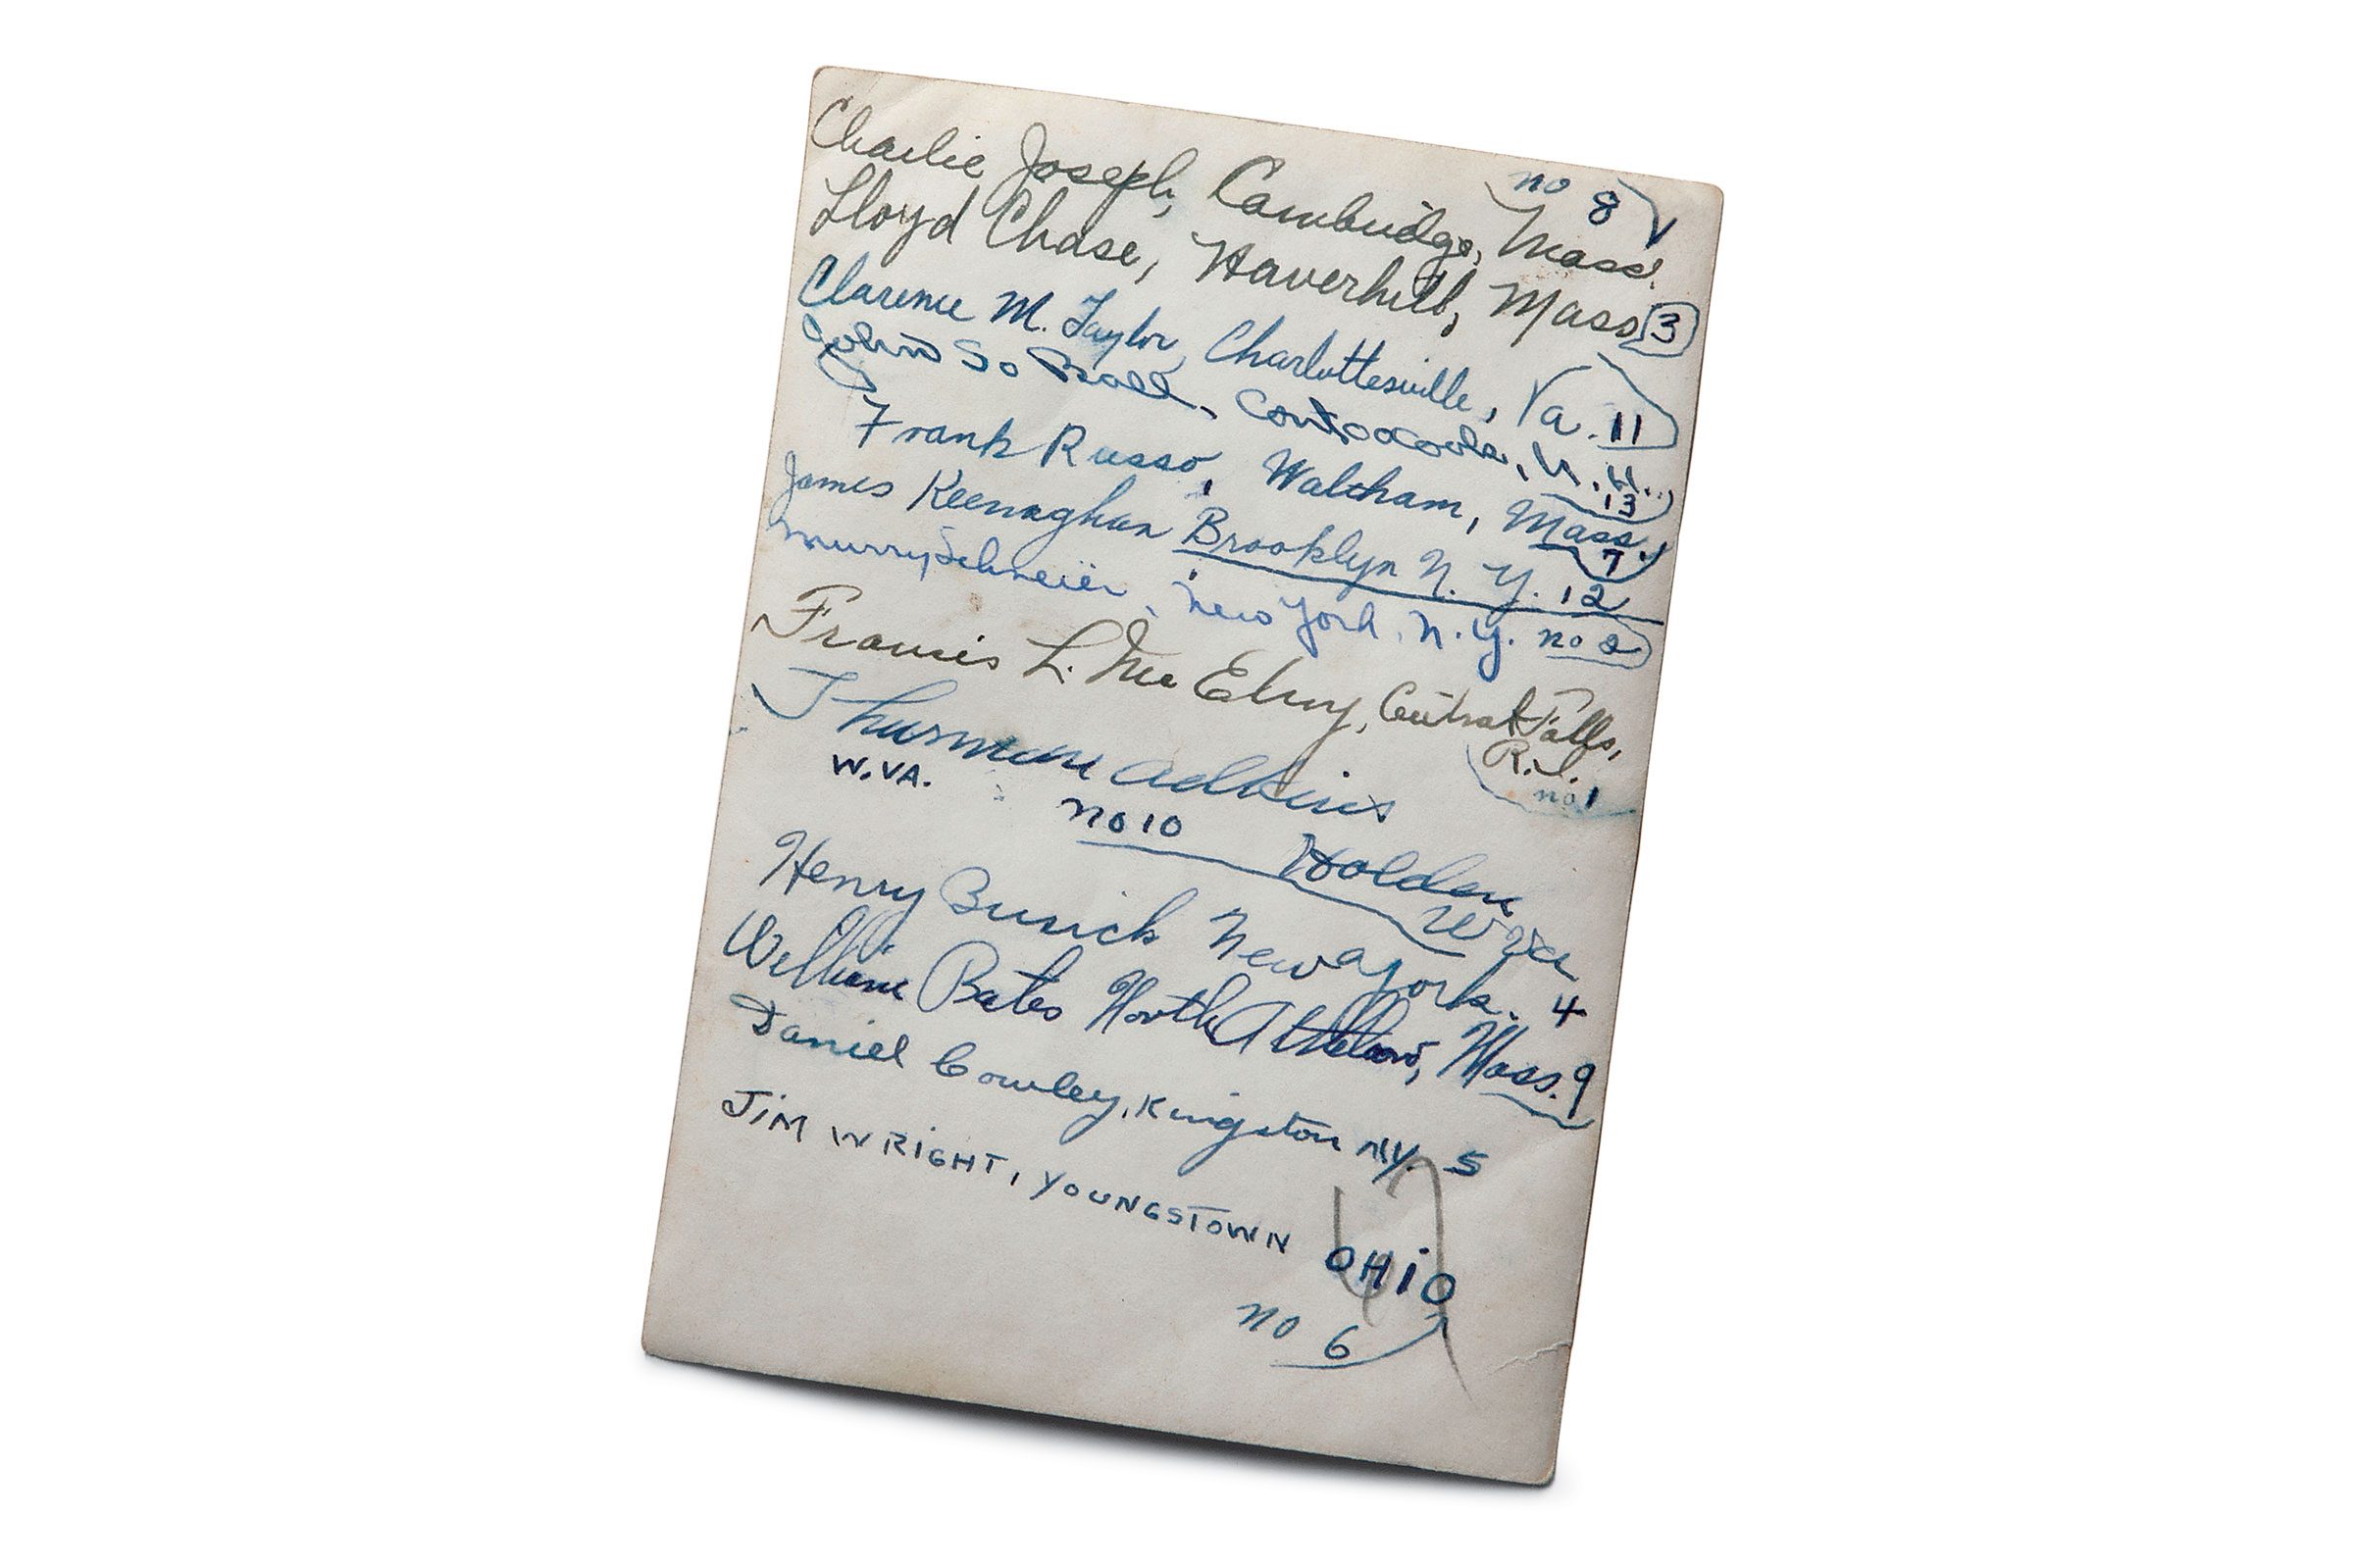 no 8
Charlie Joseph, Cambridge, Mass.
Lloyd Chase, Haverhill, Mass. 3
Clarence M. Taylor, Charlottesville, Va. 11
John So N.H. 13
Frank Russo, Waltham, Mass. 7
James Keenaghan Brooklyn N.Y. 12
Murry Schneier, New York, N.Y. no 2
Francis L. Mc Elroy, Central Falls,
R.I.
no 1
Thurman Adkins
W.VA.
no 10 Holden
W Va
Henry Busick New York. 4
William Bates North Attleboro, Mass. 9
Daniel Cowley, Kingston NY. 5
JiM WRiGHT, YOUNGSTOWN
OHiO
no 6